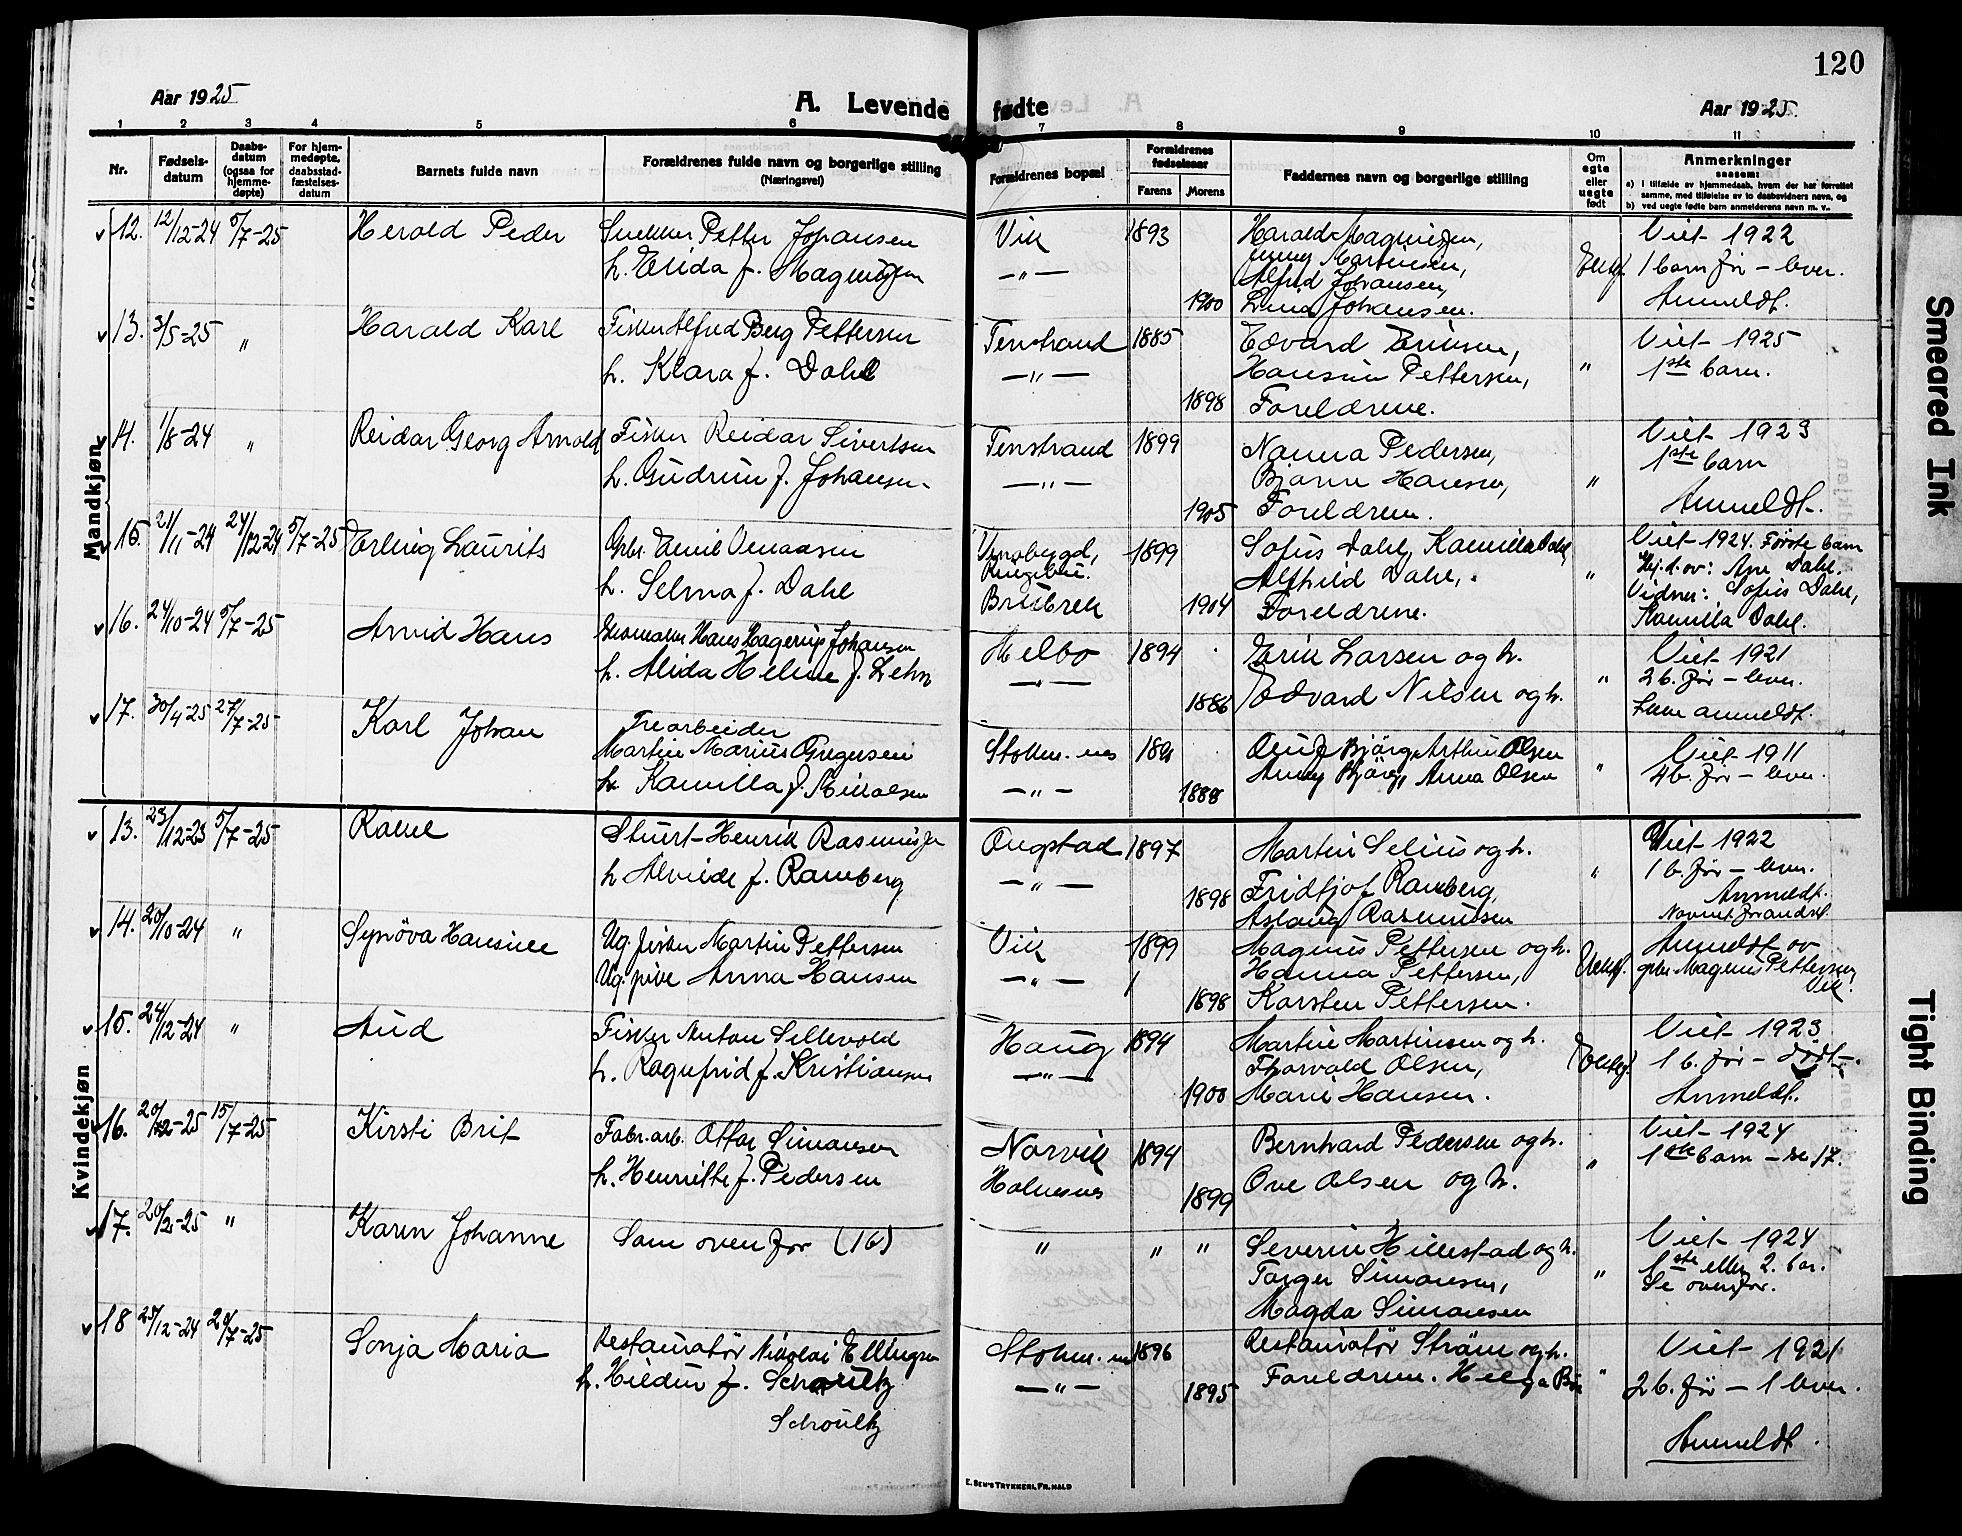 120
Aar 1925
A. Levende fødte
Aar 1925.
1 2 3 4 5 6 7 8 9 10 11
Nr.
Fødsels-
datum
Daabs-
datum
(ogsaa for
hjemme-
døpte)
For hjem-
medøpte,
daabsstad-
fæstelses-
datum
Barnets fulde navn
Forældrenes fulde navn og borgerlige stilling
(Næringsvei)
Forældrenes bopæl
Forældrenes
fødselsaar
Farens Morens
Faddernes navn og borgerlige stilling
Om
egte
eller
uegte
født
Anmerkninger
saasom:
a) i tilfælde av hjemmedaab, hvem der har forrettet
samme, med tilføielse av to daabsvidners navn, og
b) ved uegte fødte barn anmelderens navn m. v.
Mandkjøn
12. 12/12-24 5/7-25 Herold Peder
Snekker Petter Johansen
h. Erida f. Magnussen
Vik 1893
—"— 1900
Harald Magnussen,
Martinsen,
Alfred Johansen,
Johansen.
Viet 1922
1 barn før – lever.
Anmeldt.
13. 3/5-25 " Harald Karl
Fisker Alfred Berg Pettersen
h. Klara f. Dahl
Tenstrand 1885
—"— 1898
Edvard Eriksen,
Hansine Pettersen,
Foreldrene.
"
Viet 1925
1ste barn.
14. 1/8-24 " Reidar Georg Arnold
Fisker Reidar Sivertsen
h. Gudrun f. Johansen
Tenstrand 1899
—"— 1905
Nanna Pedersen,
Bjarne Hansen,
Foreldrene.
"
Viet 1923
1ste barn
Anmeldt.
15. 21/11-24 24/12-24 5/7-25 Erling Laurits
Grbr. Emil
h. Selma f. Dahl
Ringebu.
1899
1904
Sofus Dahl, Kamilla Dahl,
Alfhild Dahl,
Foreldrene.
"
Viet 1924. Første barn
Hj.d. av: Ane Dahl.
Vidner: Sofus Dahl,
Kamilla Dahl.
16. 24/10-24 5/7-25 Arvid Hans
Hans Hagerup Johansen
h. Alida Helene f. Lehn
Melbo 1894
—"— 1886
Erik Larsen og h.
Edvard Nilsen og h.
"
Viet 1921
2 b. før – lever.
anmeldt.
17. 30/4-25 27/7-25 Karl Johan
Trearbeider
Martin Marius Gregersen
h. Kamilla f. Nikolaisen
Stokm.nes
—"— 1888
Bjørg, Arthur Olsen
Anny Bjørg, Anna Olsen
"
Viet 1911
4 b. før – lever.
Kvindekjøn
13. 23/12-23 5/7-25 Rakel
Stuert Henrik Rasmussen
h. Alvilde f. Ramberg
Ongstad 1897
—"— 1898
Martin Selius og h.
Fridtjof Ramberg,
Aslaug Rasmussen
"
Viet 1922
1 b. før – lever.
Anmeldt.
Navnet forandret.
14. 20/10-24 " Synøva Hansine
Ug. fisker Martin Pettersen
Ug. pike Anna Hansen
Vik 1899
—"— 1898
Magnus Pettersen og h.
Hanna Pettersen,
Karsten Pettersen.
Uekte f.
Anmeldt av
grbr. Magnus Pettersen,
Vik.
15. 24/12-24 " Aud
Fisker Anton Sellevold
h. Ragnfrid f. Kristiansen
Haug 1894
—"— 1900
Martin Martinsen og h.
Thorvald Olsen,
Marie Hansen.
Ektef.
Viet 1923
1 b. før – dødt.
Anmeldt.
16. 20/2-25 15/7-25 Kirsti Brit
Fabr.arb. Ottar Simonsen
h. Henriette f. Pedersen
Narvik 1894
Holmenes 1899
Bernhard Pedersen og h.
Ove Olsen og h.
"
Viet 1924
1ste barn – se 17.
17. 20/2-25 " Karen Johanne
Som ovenfor (16)
" " "
Severin Hillestad og h.
Torger Simonsen,
Magda Simonsen
"
Viet 1924
1ste eller 2. bar.
Se ovenfor.
18 25/12-24 29/7-25 Sonja Maria
Restauratør Nikolai Ellingsen
h. Hildur f.
Schoultz
Stokm.nes 1896
—"— 1895
Restauratør Strøm og h.
Foreldrene. Helga
"
Viet 1921
2 b. før – 1 lever.
Anmeldt.
E. SEM'S TRYKKERI, FR.HALD
Smeared Ink
Tight Binding